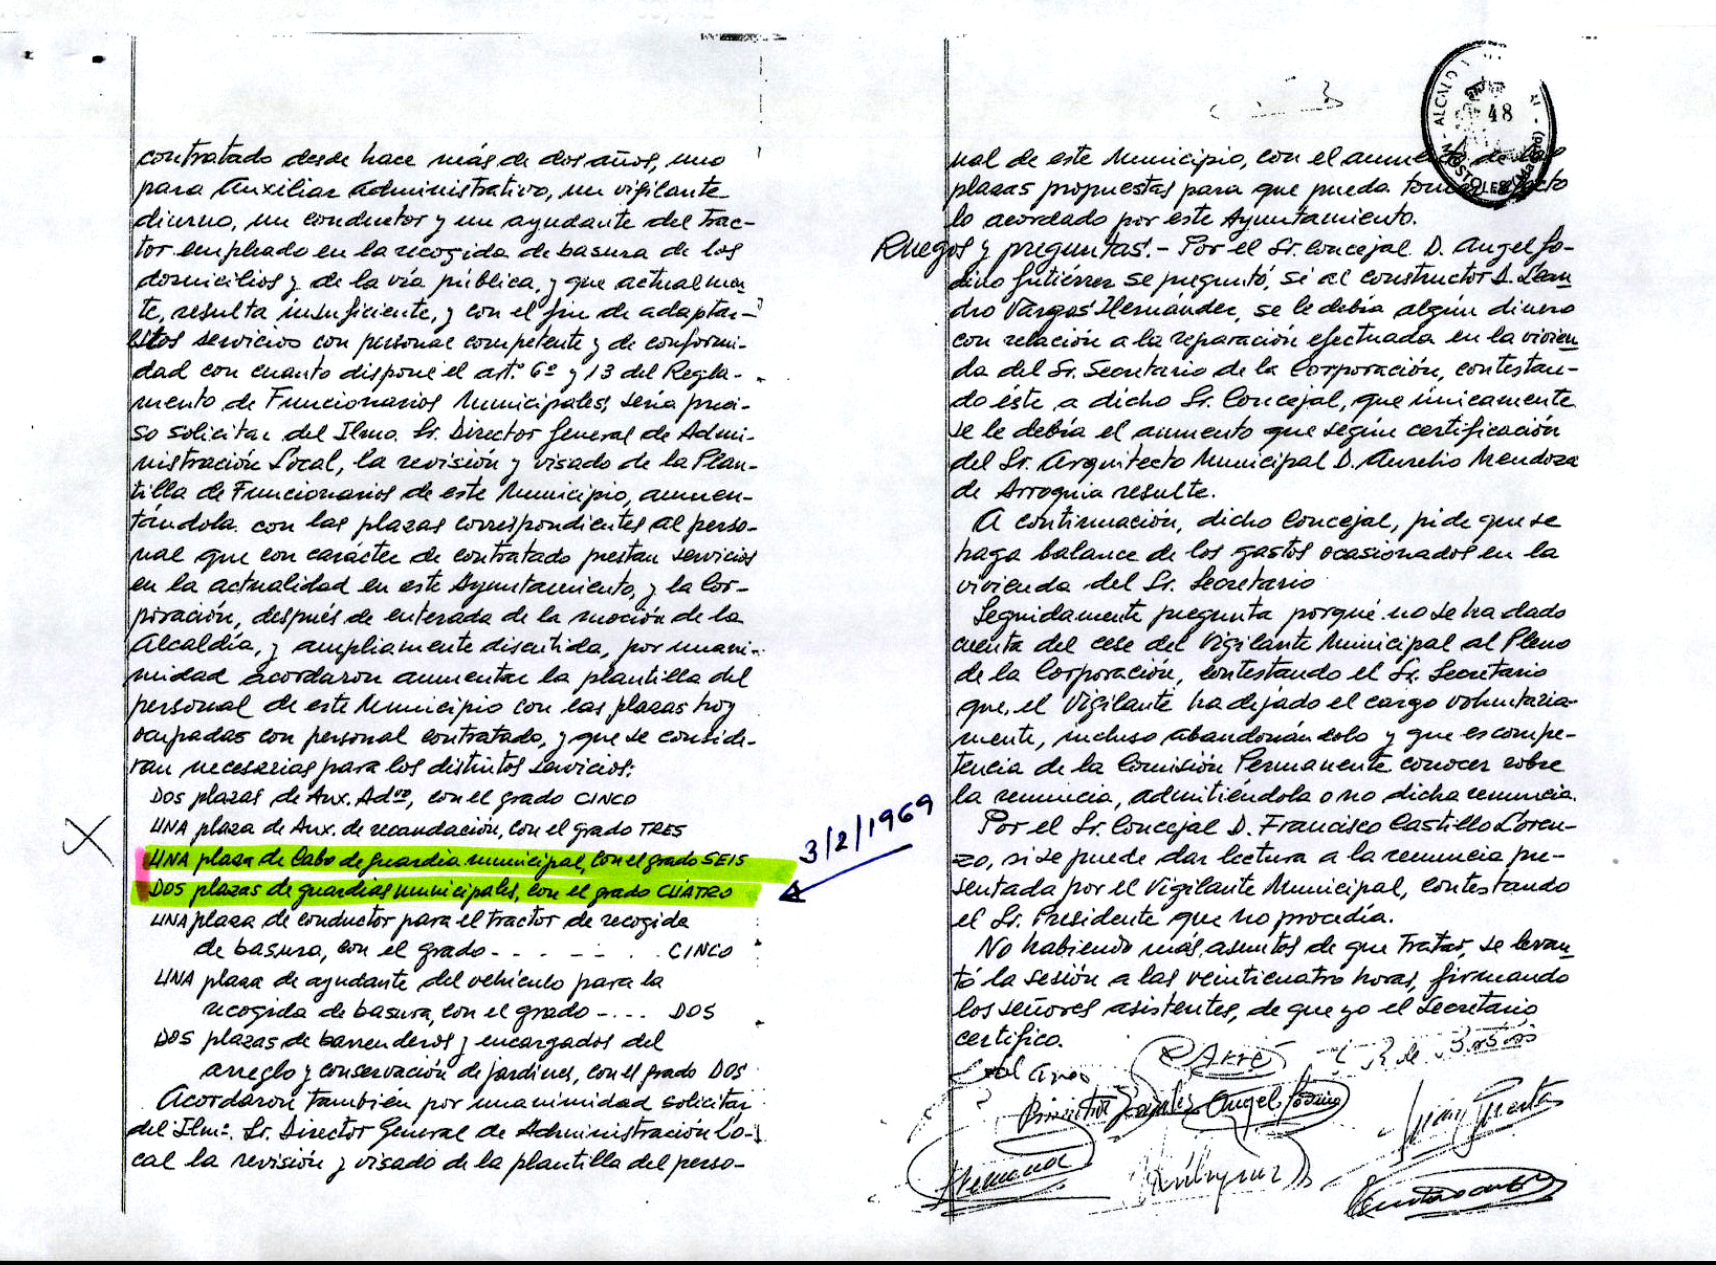 contratado desde hace más de dos años, uno
para Auxiliar Administrativo, un vigilante
diurno, un conductor y un ayudante del trac-
tor empleado en la recogida de basura de los
domicilios y de la vía pública, y que actualmen
te, resulta insuficiente, y con el fin de adaptar-
estos servicios con personal competente y de conformi-
dad con cuanto dispone el art.º 6º y 13 del Regla-
mento de Funcionarios Municipales, sería preci-
so solicitar del Ilmo. Sr. Director General de Admi-
nistración Local, la revisión y visado de la Plan-
tilla de Funcionarios de este Municipio, aumen-
tándola con las plazas correspondientes al perso-
nal que con carácter de contratado prestan servicios
en la actualidad en este Ayuntamiento, y la Cor-
poración, después de enterada de la moción de la
Alcaldía, y ampliamente discutida, por unani-
midad acordaron aumentar la plantilla del
personal de este Municipio con las plazas hoy
ocupadas con personal contratado, y que se conside-
ran necesarias para los distintos servicios:
DOS plazas de Aux. Advo, con el grado CINCO
UNA plaza de Aux. de recaudación, con el grado TRES
UNA plaza de Cabo de guardia municipal, con el grado SEIS
DOS plazas de guardias municipales, con el grado CUATRO
3/2/1969
UNA plaza de conductor para el tractor de recogida
de basura, con el grado - - - - - . CINCO
UNA plaza de ayudante del vehículo para la
recogida de basura, con el grado - ... DOS
DOS plazas de barrenderos y encargados del
arreglo y conservación de jardines, con el grado DOS
Acordaron también por unanimidad solicitar
del Ilmº. Sr. Director General de Administración Lo-
cal la revisión y visado de la plantilla del perso-
48
nal de este Municipio, con el aumento de las
plazas propuestas para que pueda tomar efecto
lo acordado por este Ayuntamiento.
Ruegos y preguntas.- Por el Sr. Concejal D. Angel Go-
dino Gutiérrez se preguntó, si al constructor D. Lean
dro Vargas Hernández, se le debía algún dinero
con relación a la reparación efectuada en la vivien
da del Sr. Secretario de la Corporación, contestan-
do éste a dicho Sr. Concejal, que únicamente
se le debía el aumento que según certificación
del Sr. Arquitecto Municipal D. Aurelio Mendoza
de Arroquia resulte.
A continuación, dicho Concejal, pide que se
haga balance de los gastos ocasionados en la
vivienda del Sr. Secretario
Seguidamente pregunta porqué no se ha dado
cuenta del cese del Vigilante Municipal al Pleno
de la Corporación, contestando el Sr. Secretario
que, el Vigilante ha dejado el cargo voluntaria-
mente, incluso abandonándolo y que es compe-
tencia de la Comisión Permanente conocer sobre
la renuncia, admitiéndola o no dicha renuncia.
Por el Sr. Concejal D. Francisco Castillo Loren-
zo, si se puede dar lectura a la renuncia pre-
sentada por el Vigilante Municipal, contestando
el Sr. Presidente que no procedía.
No habiendo más asuntos de que tratar, se levan
tó la sesión a las veinticuatro horas, firmando
los señores asistentes, de que yo el Secretario
certifico.
Angel Godino